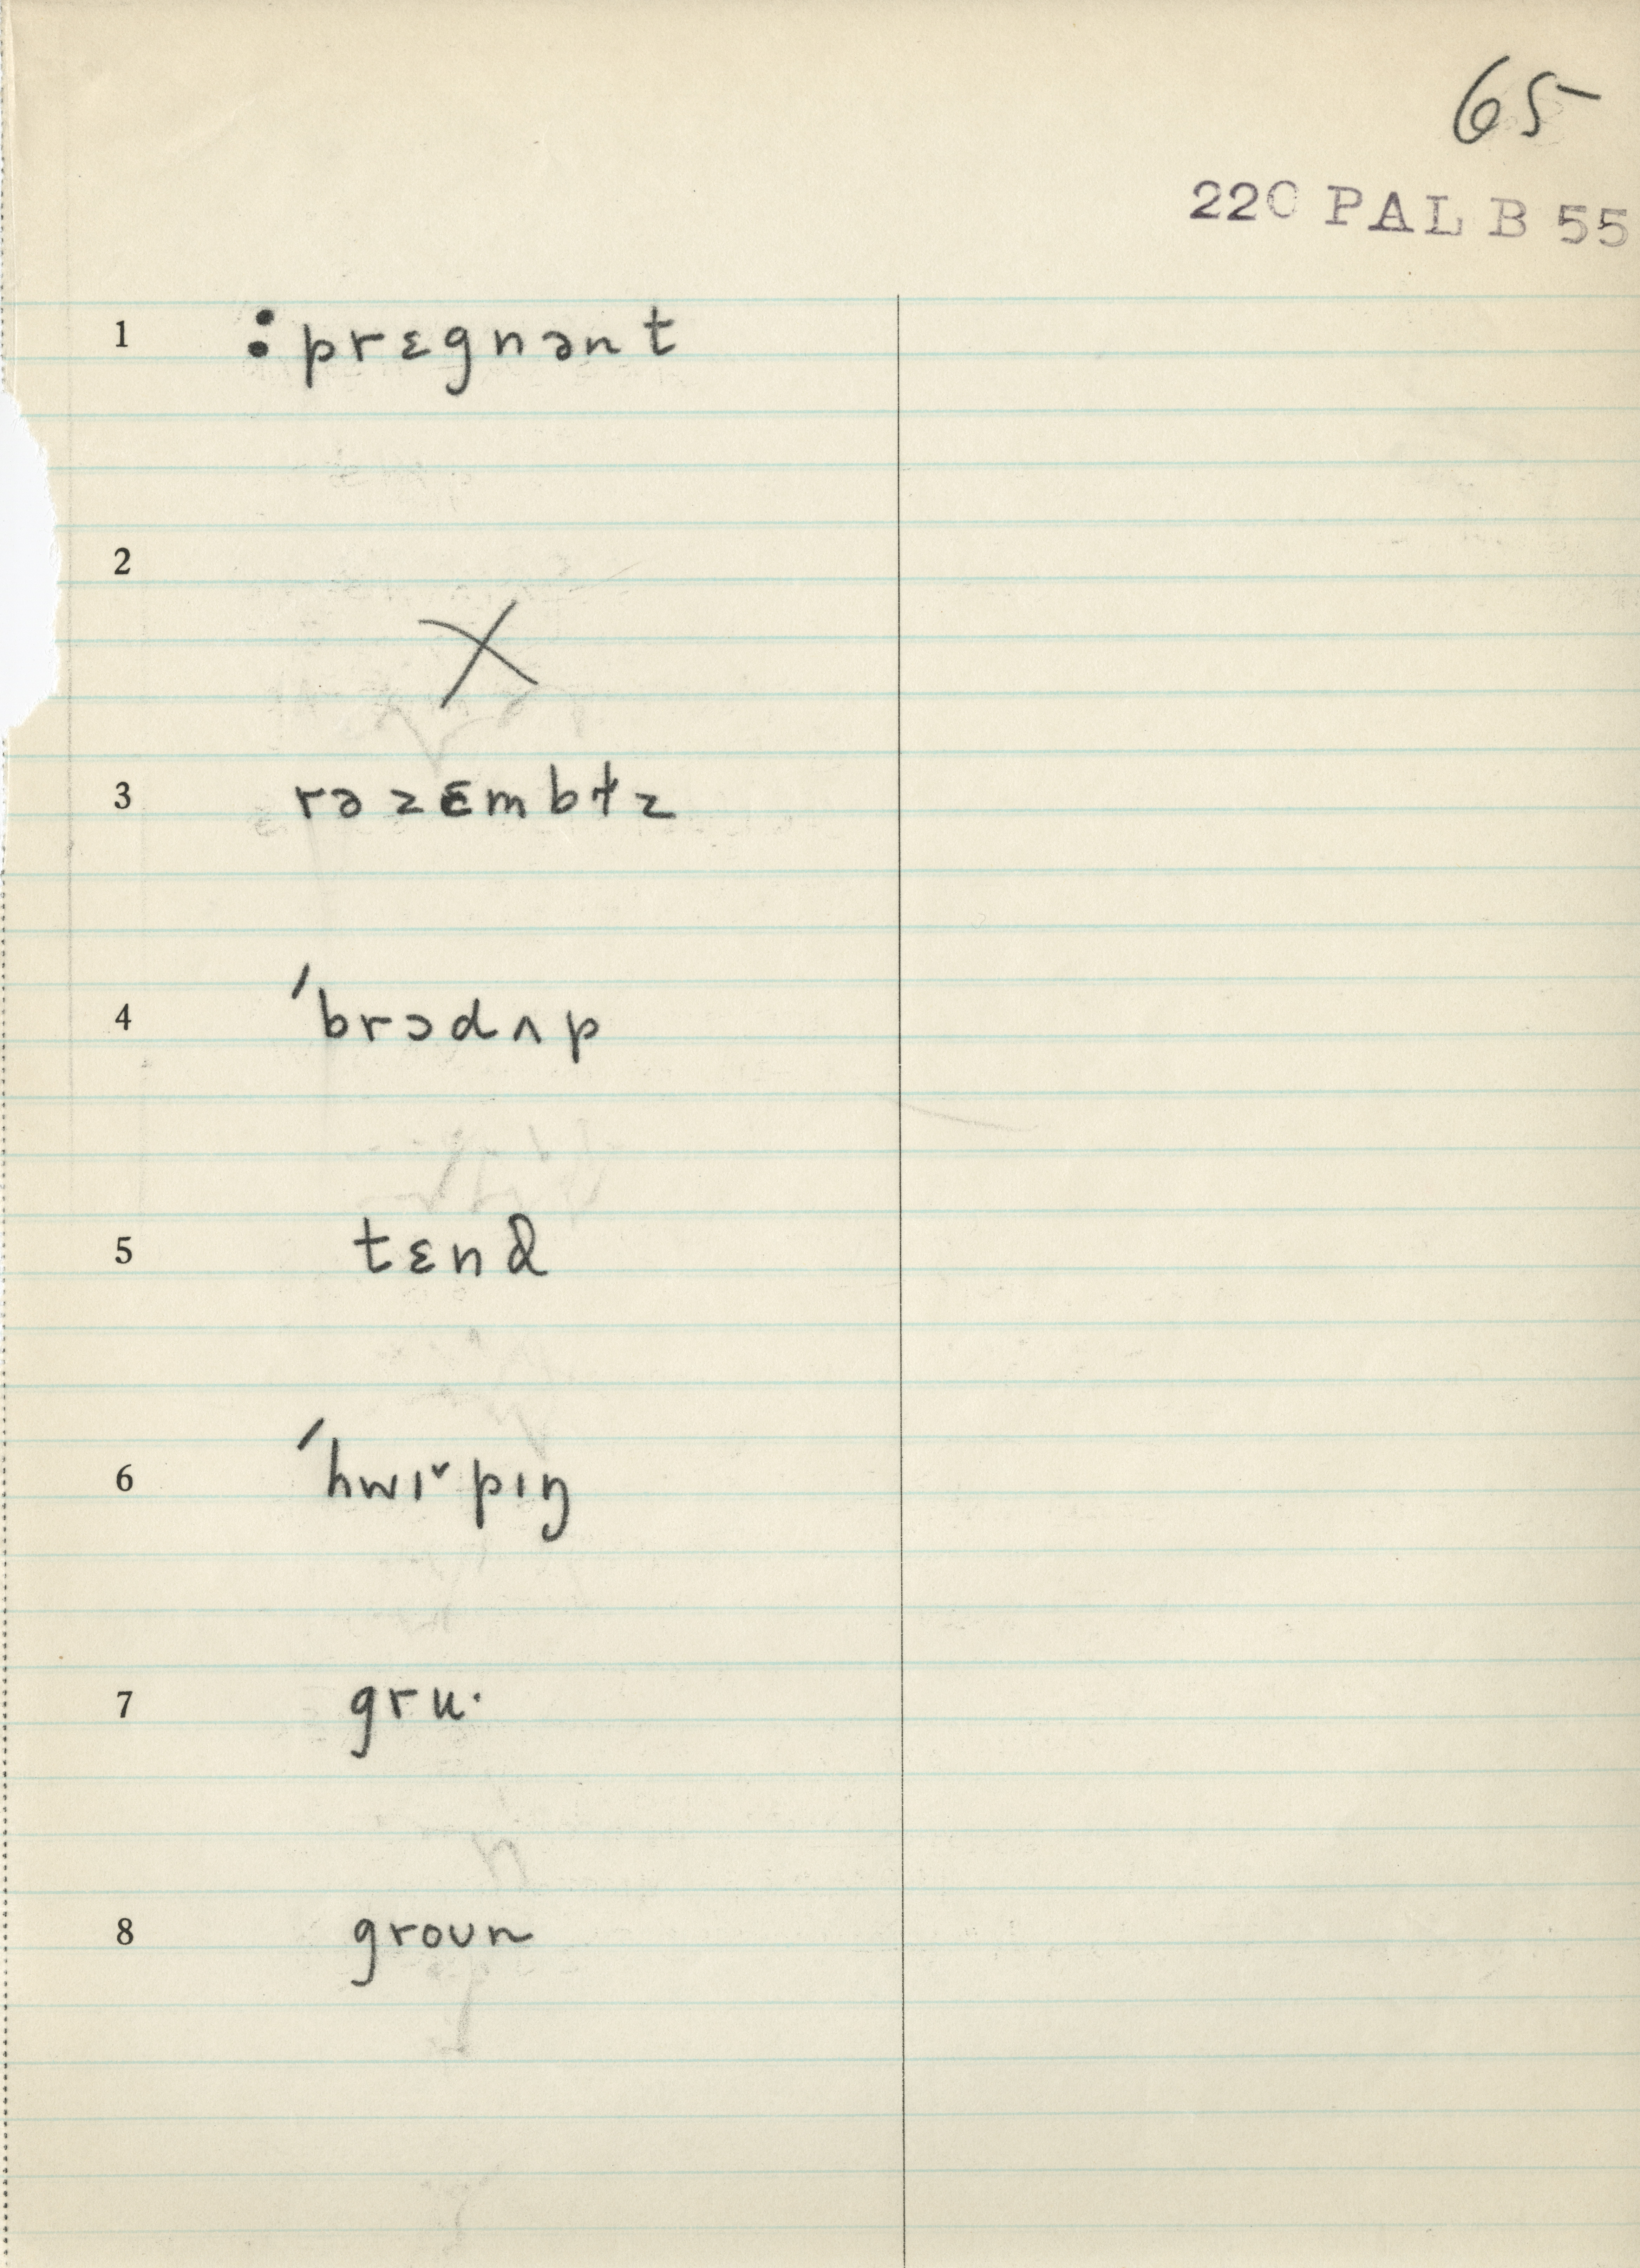 65
220 PAL B 55
1 :prɛgnənt
2
X
3 rəzɛmbɫz
4 ˊbrɔdʌp
5 tɛnd
6 ˊhwɪ˅pɪŋ
7 gru·
8 groun